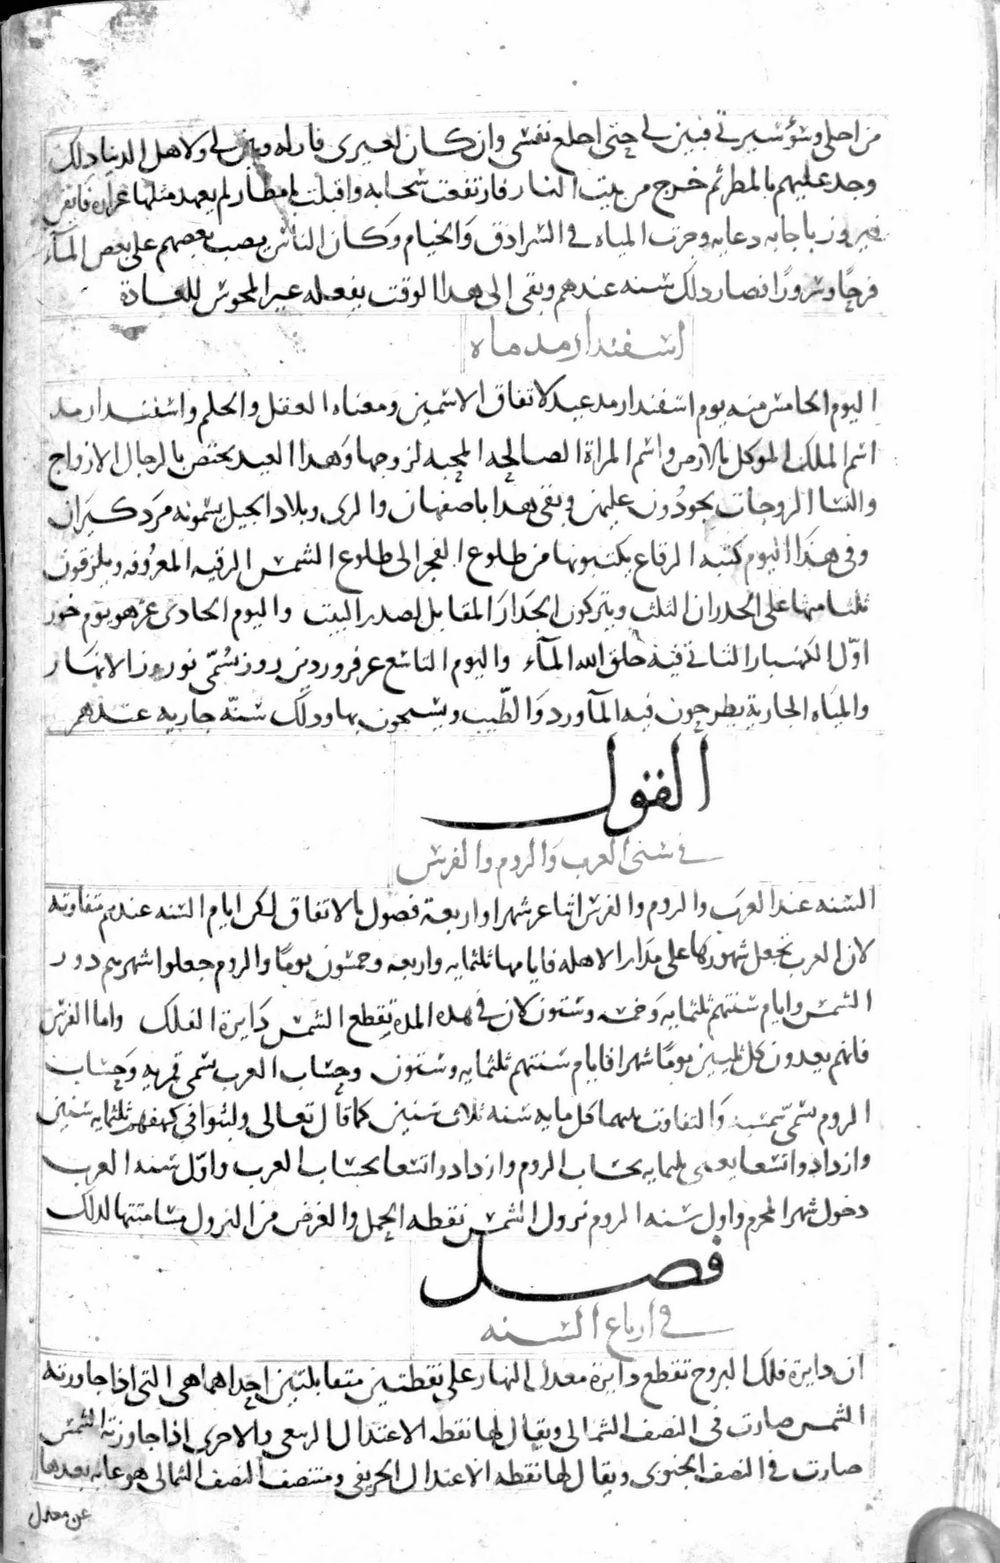 من اجلي وسؤ سيرتي فبين لي حتى اخلع نفسي وان كان لغيري فازله وبين لي ولاهل الدنيا ذلك
وجد عليهم بالمطر ثم خرج من بيت النار فارتفعت سحابه واقبلت بامطار لم يعهد مثلها غزارة فايقن
فيروز باجابه دعايه وجرت المياه في السرادق والخيام وكان الناس يصب بعضهم على بعض المآء
فرحًا وسرورًا فصار ذلك سنه عندهم وبقى الى هذا الوقت يفعله غير المجوس للعادة
اسفندارمد ماه
اليوم الخامس منه يوم اسفندارمد عيد لاتفاق الاسمين ومعناه العقل والحلم واسفندارمد
اسم الملك الموكل بالارض واسم المراة الصالحه المحبه لزوجها وهذا العيد يختص بالرجال الازواج
والنسا الزوجات يجودون عليهن وبقى هذا باصفهان والرى وبلاد الجبل يسمونه مردكيران
وفى هذا اليوم كتبه الرقاع يكتبونها من طلوع الفجر الى طلوع الشمس الرقيه المعروفه ويلزقون
ثلثا منها على الجدران الثلث ويتركون الجدار المقابل لصدر البيت واليوم الحادى عشر هو يوم خور
اوّل الكهنبار الثانى فيه خلق الله المآء واليوم التاسع عشر فروردين روز يسمّى نوروز الانهار
والمياه الجارية يطرحون فيه المآورد والطّيب ويسبحون بها وذلك سنّه جاريه عندهم
القول
في سنى العرب والروم والفرس
السنه عند العرب والروم والفرس اثنا عشر شهرا واربعة فصول بالاتفاق لكن ايام السنه عندهم متفاوته
لان العرب تجعل شهورها على مدار الاهله فايامها ثلثمايه واربعه وخمسون يومًا والروم جعلوا شهرهم دور
الشمس وايام سنتهم ثلثمايه وخمسه وستون لان في هذه المدة تقطع الشمس دايرة الفلك واما الفرس
فانهم يعدون كل ثلثين يومًا شهرا فايام سنتهم ثلثمايه وستون وحساب العرب يسمى قمريه وحساب
الروم يسمى شمسيه والتفاوت بينهما كل مايه سنه ثلاث سنين كما قال تعالى ولبثوا في كهفهم ثلثمايه سنين
وازدادوا تسعا يعنى ثلثمايه بحساب الروم وازدادوا تسعا بحساب العرب واوّل سنه العرب
دخول شهر المحرم واول سنه الروم نزول الشمس نقطه الحمل والغرض من النزول مسامتتها لذلك
فصل
في ارباع السنه
ان دايرة فلك البروج تقطع دايرة معدل النهار على نقطتين متقابلتين احداهما هى التى اذا جاوزته
الشمس صارت فى النصف الشمالى ويقال لها نقطه الاعتدال الربيعى والاخرى اذا جاوزتها الشمس
صارت في النصف الجنوبى ويقال لها نقطه الاعتدال الخريفى ومنتصف النصف الشمالى هو غايه بعدها
عن معدل